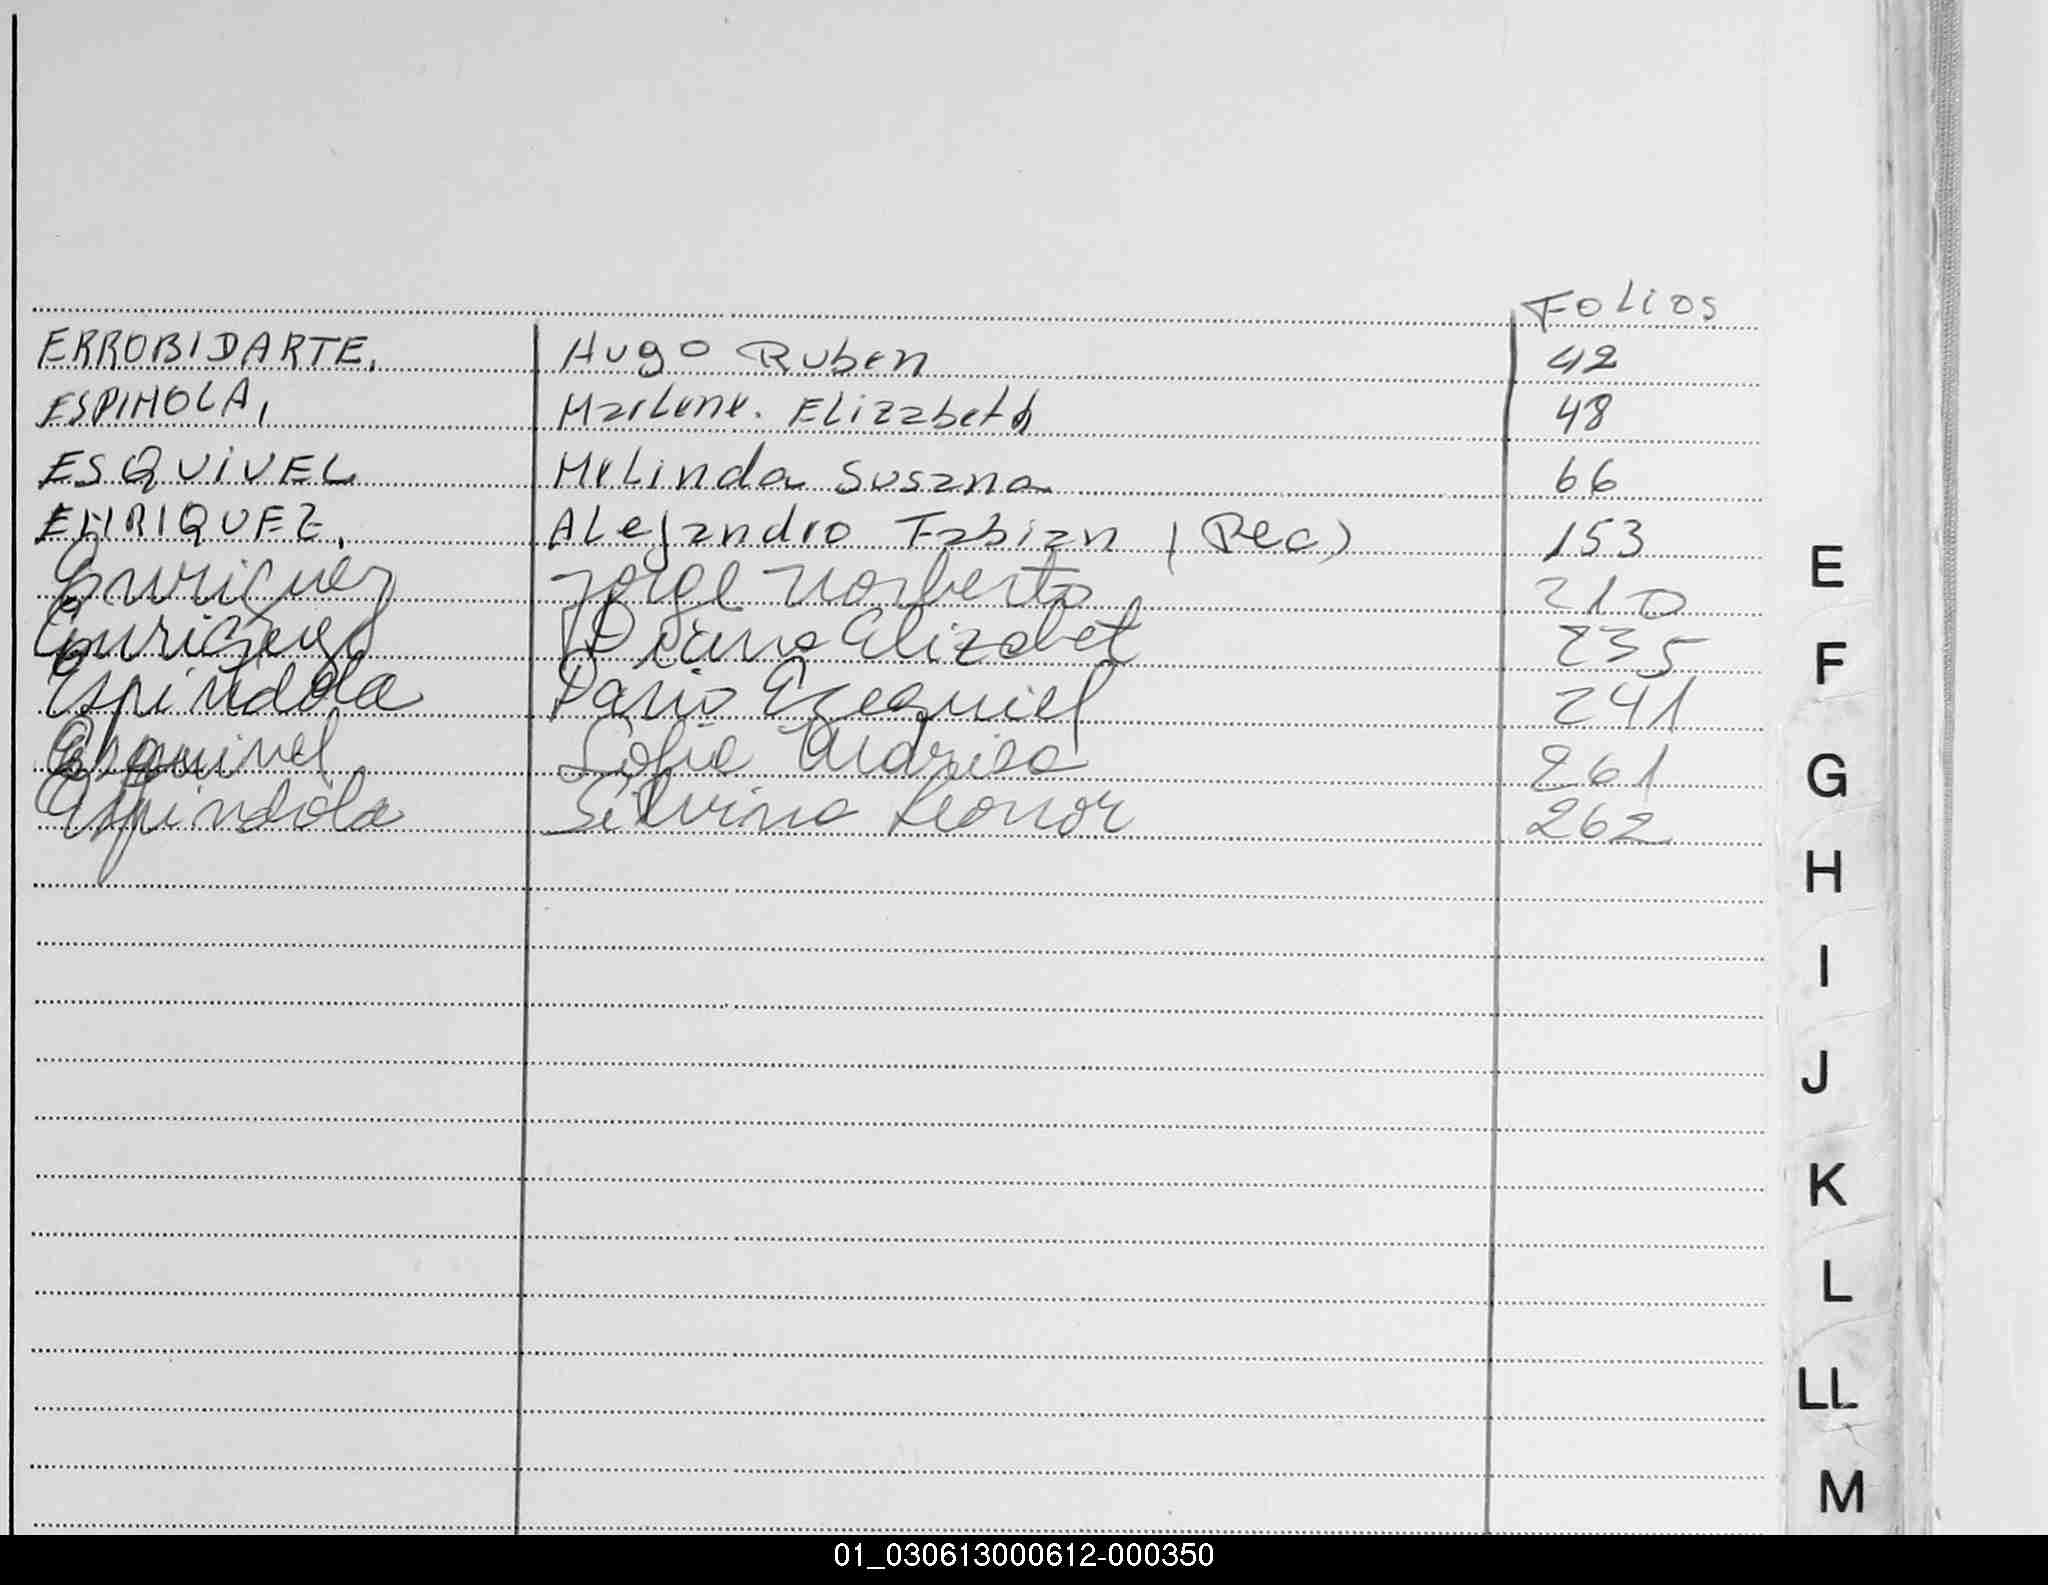 Folios
ERROBIDARTE, Hugo Ruben 42
ESPINOLA, Marlene. Elizabeth 48
ESQUIVEL Melinda Susana 66
ENRIQUEZ, Alejandro Fabian (Rec) 153
Enriquez Jorge Norberto 210
Enriquez Diana Elizabet 235
Espindola Dario Ezequiel 241
Esquivel Sofia 261
Espindola Silvina Leonor 262
E
F
G
H
I
J
K
L
LL
M
01_030613000612-000350